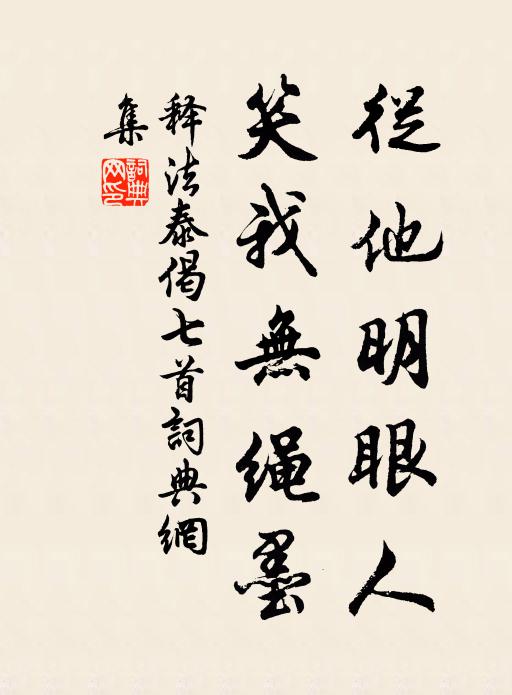 從他明眼人
笑我無繩墨
释法泰偈七首詞典網
集
詞典网印